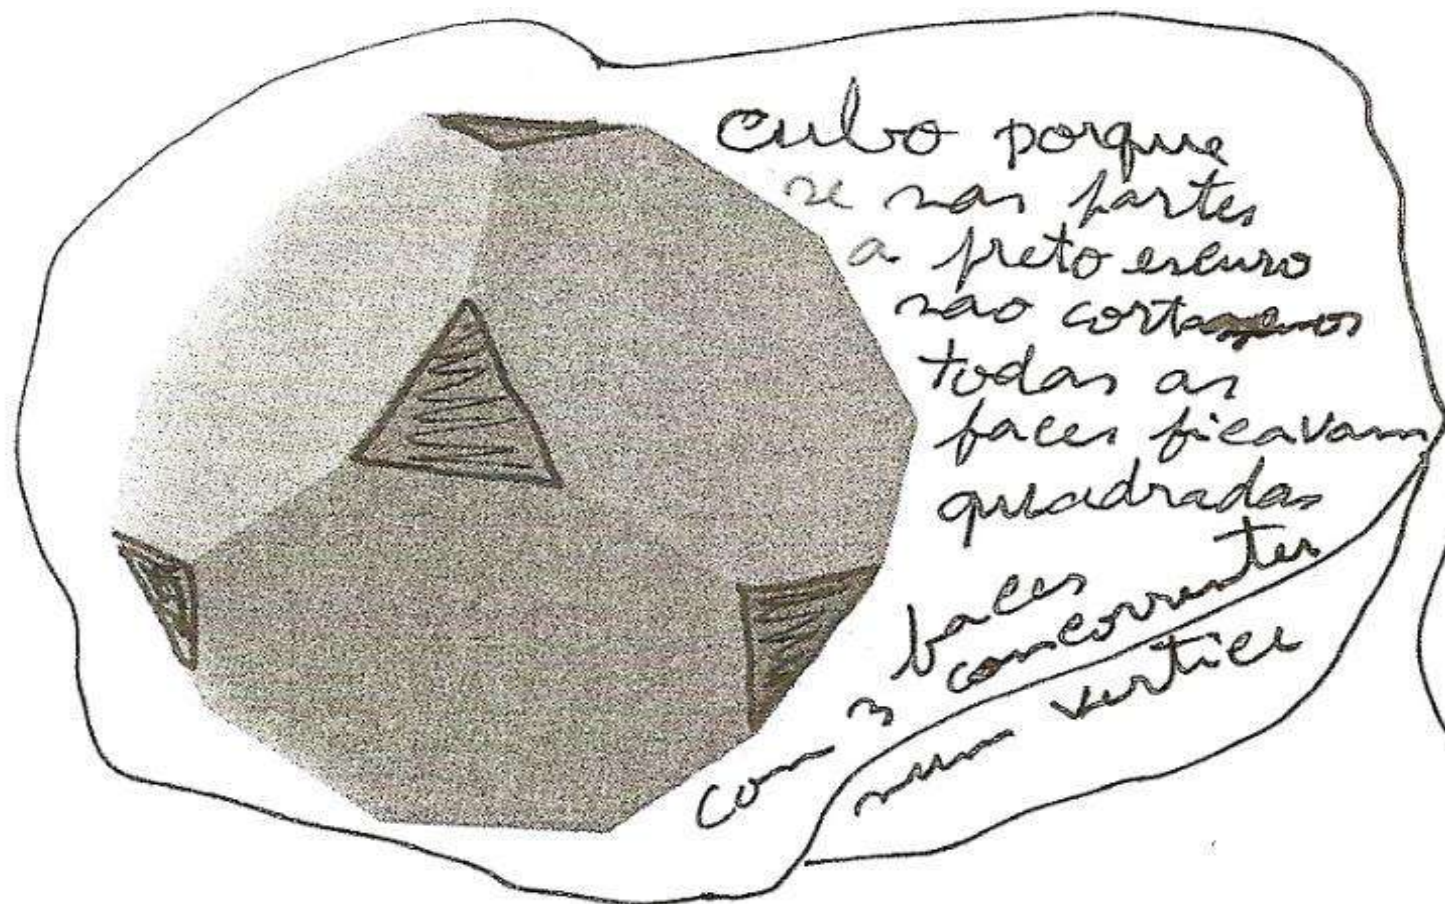 Cubo porque
se nas partes
a preto escuro
não cortassemos
todas as
faces ficavam
quadradas
com 3 faces concorrentes
num vertice